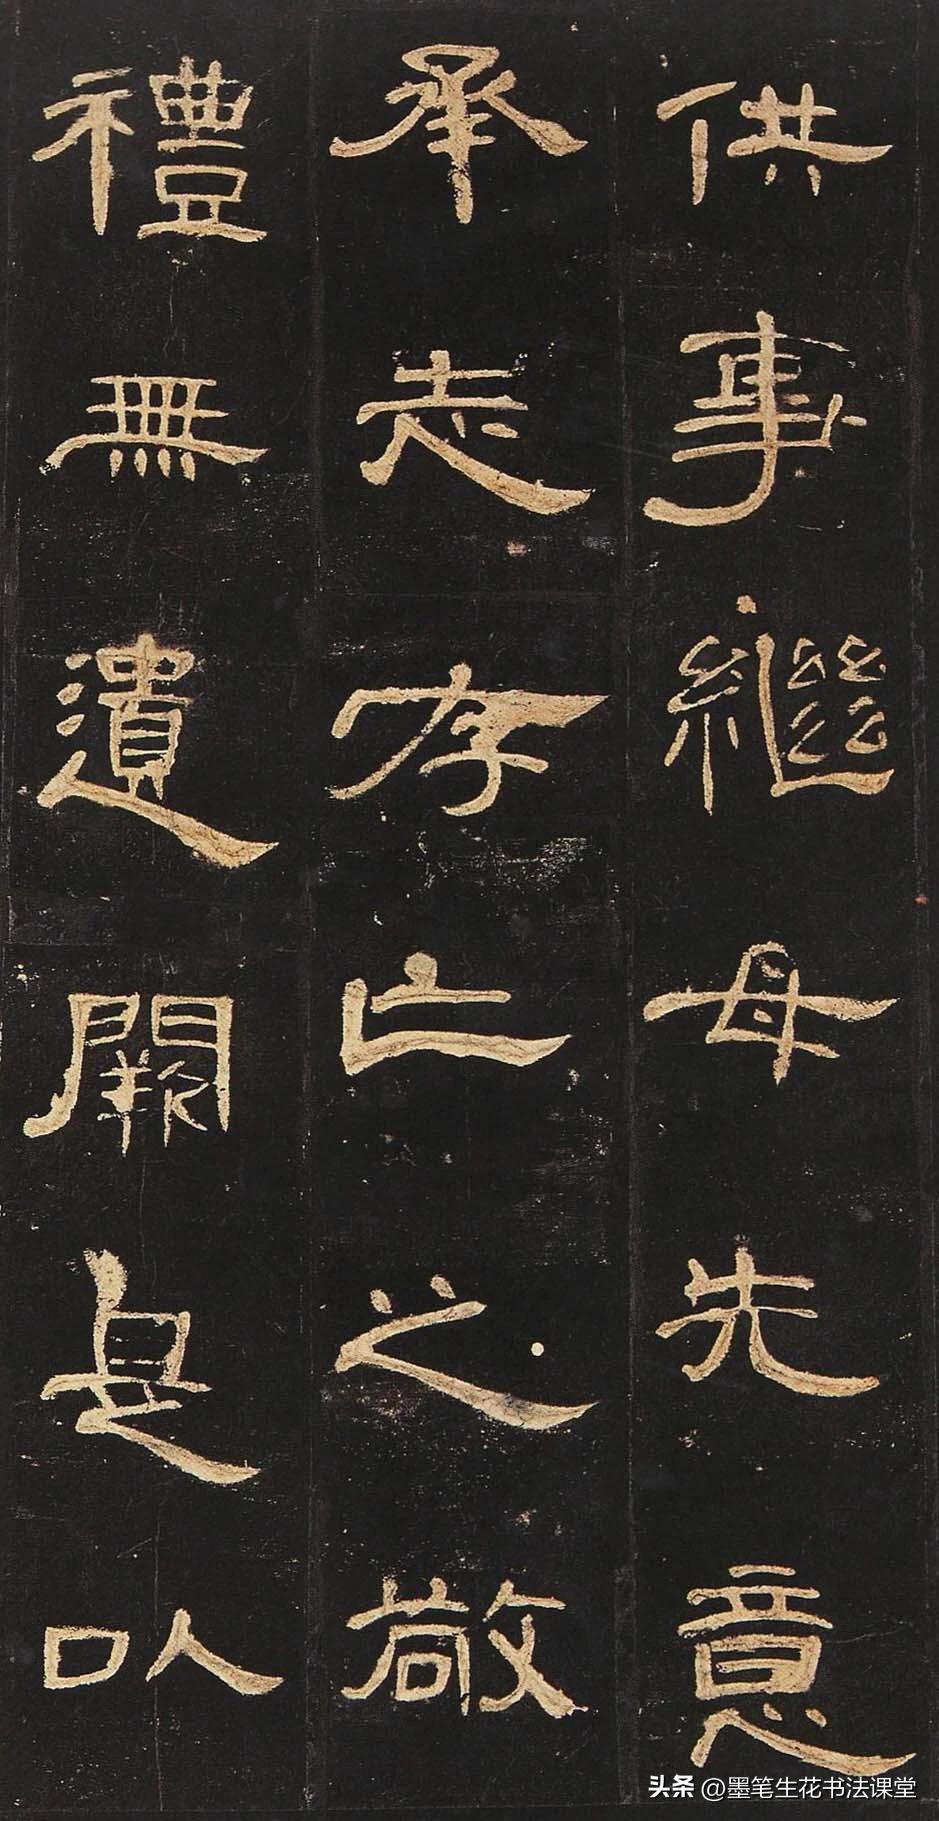 供事繼母先意
承志存亡之敬
禮無遺闕是以
头条 @墨笔生花书法课堂